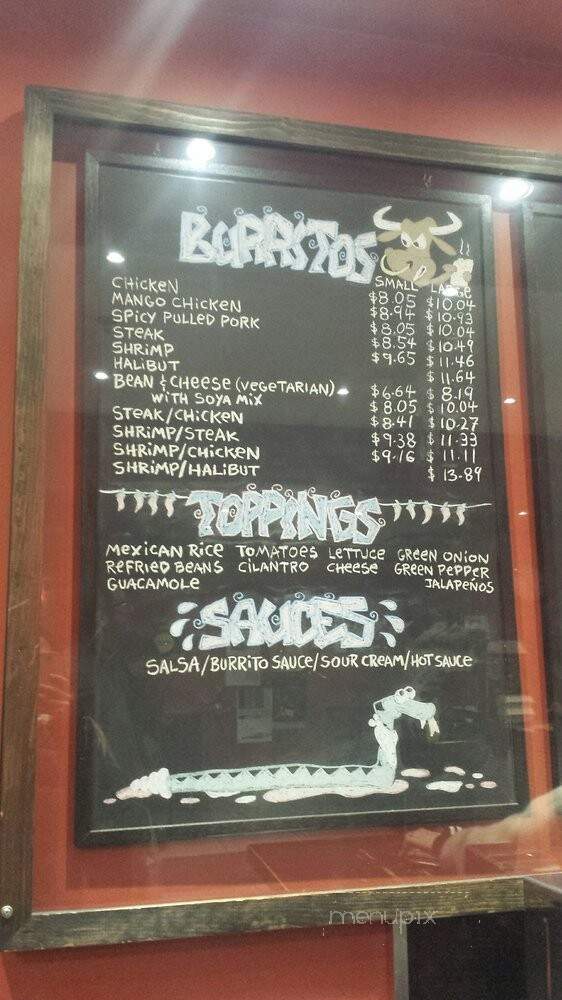 BURRITOS
SMALL LARGE
CHICKEN $8.05 $10.04
MANGO CHICKEN $8.94 $10.93
SPICY PULLED PORK $8.05 $10.04
STEAK $8.54 $10.49
SHRIMP $9.65 $11.46
HALIBUT $11.64
BEAN & CHEESE (VEGETARIAN) $6.64 $8.19
WITH SOYA MIX $8.05 $10.04
STEAK/CHICKEN $8.41 $10.27
SHRIMP/STEAK $9.38 $11.33
SHRIMP/CHICKEN $9.16 $11.11
SHRIMP/HALIBUT $13.89
TOPPINGS
MEXICAN RICE TOMATOES LETTUCE GREEN ONION
REFRIED BEANS CILANTRO CHEESE GREEN PEPPER
GUACAMOLE JALAPEÑOS
SAUCES
SALSA/BURRITO SAUCE/SOUR CREAM/HOT SAUCE
menupix